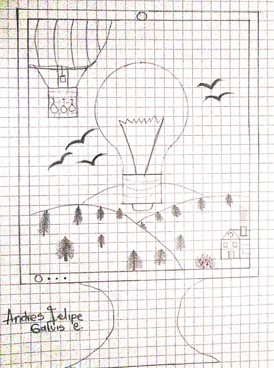 Andres Felipe
Galvis E.